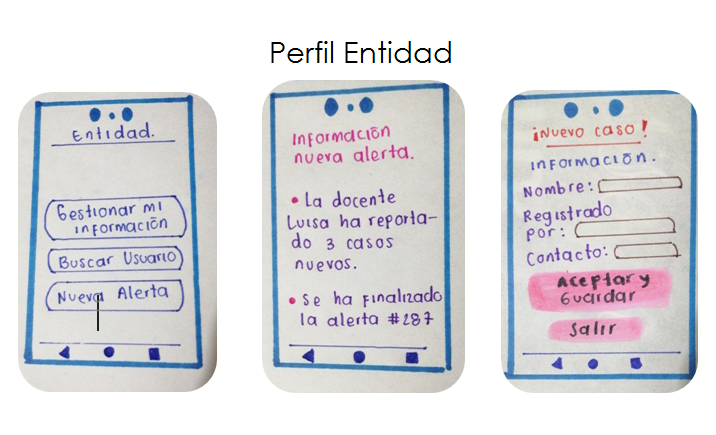 Perfil Entidad
Entidad.
Gestionar mi
información
Buscar Usuario
Nueva Alerta
Información
nueva alerta.
• La docente
Luisa ha reporta-
do 3 casos
nuevos.
• Se ha finalizado
la alerta #287
¡Nuevo caso!
Información.
Nombre:
Registrado
por:
Contacto:
Aceptar y
Guardar
Salir